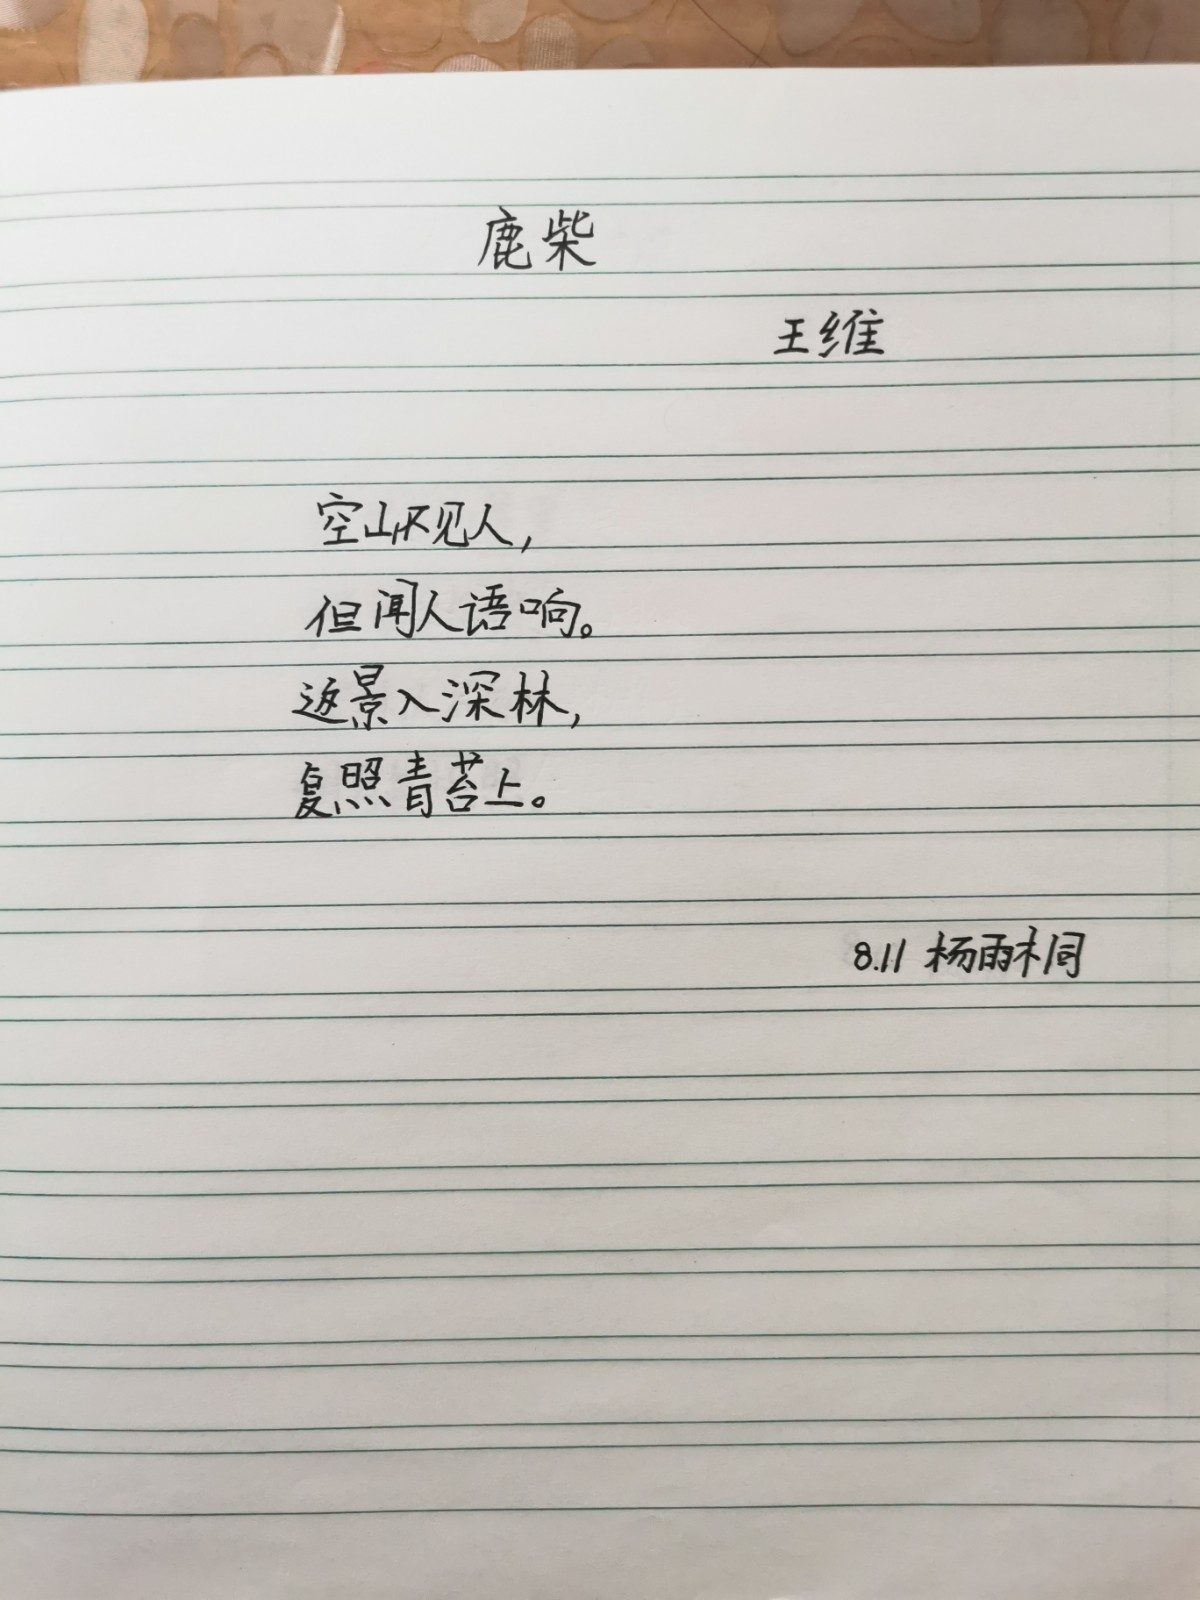 鹿柴
王维
空山不见人，
但闻人语响。
返景入深林，
复照青苔上。
8.11 杨雨桐